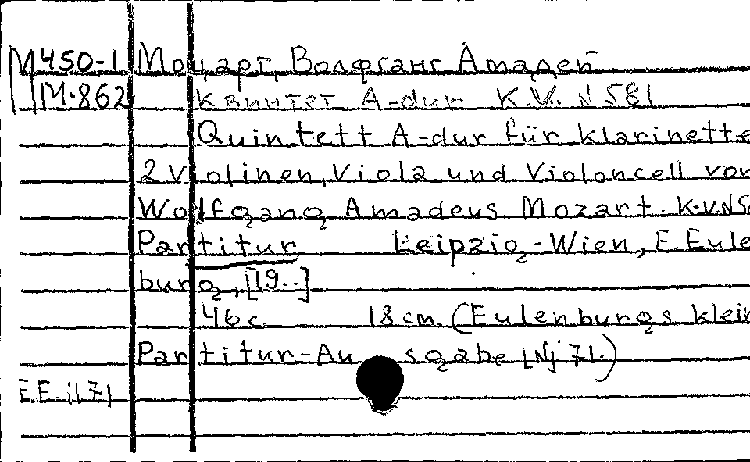 М450-1 Моцарт, Волфганг Амадей
М.862 Квинтет A-dur K.V. N 581
Quintett A-dur für Klarinette
2 Violinen, Viola und Violoncell von
Wolfgang Amadeus Mozart. K.V.N5
Partitur Leipzig-Wien, E. Eule
burg, [19..]
46 с. 18 cm. (Eulenburgs klein
Partitur-Ausgabe [N 71.)
E.E. 1171